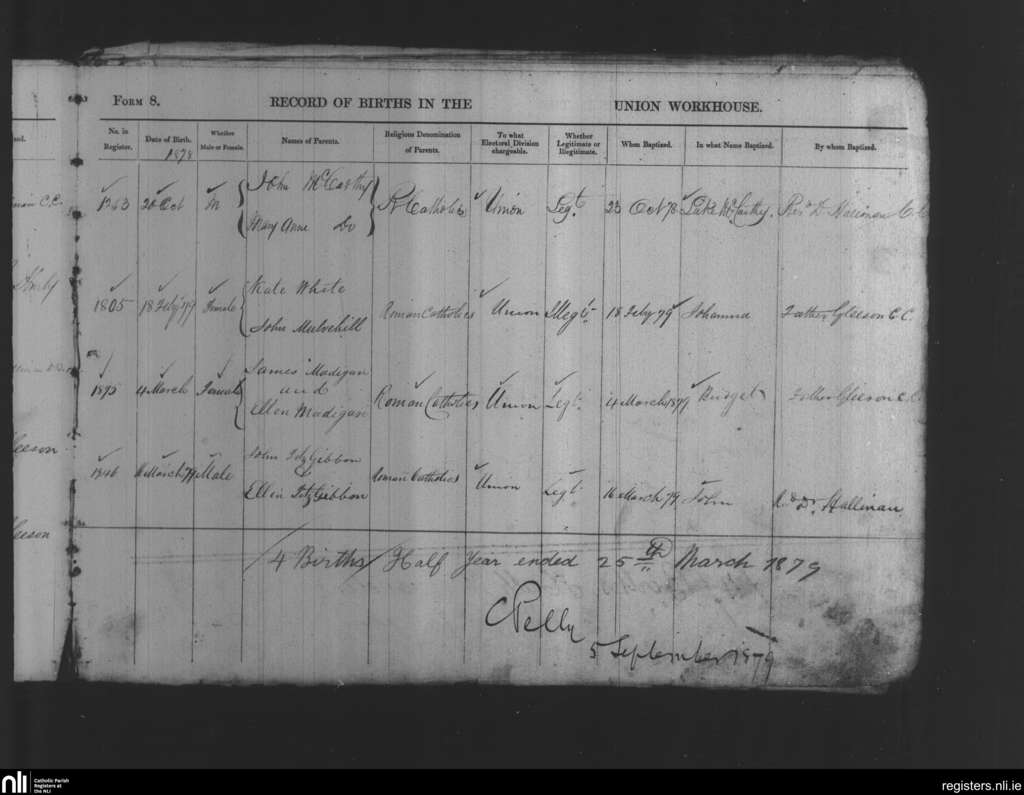 FORM 8. RECORD OF BIRTHS IN THE UNION WORKHOUSE.
No. in Register. Date of Birth. Whether Male or Female. Names of Parents. Religious Denomination of Parents. To what Electoral Division chargeable. Whether Legitimate or Illegitimate. When Baptized. In what Name Baptized. By whom Baptized.
1878
John McCarthy
1263 20 Oct M R Catholics Union Legt. 23 Oct 78 Luke McCarthy
Mary Anne Do
Kate White
1805 18 Feby '79 Female Roman Catholics Union Illegt. 18 Feby 79 Johanna Father Gleeson C.C.
John Mulvehill
James Madigan
and
1895 4 March Female Roman Catholics Union Legt. 4 March 1879 Bridget Father Gleeson C.C.
Ellen Madigan
John FitzGibbon
&
1946 16 March 79 Male Roman Catholics Union Legt. 16 March 79 John Revd. Dr. Hallinan
Ellen FitzGibbon
4 Births Half Year ended 25th March 1879
CPelly
5 September 1879
leeson
leeson
nli Catholic Parish Registers at the NLI
registers.nli.ie